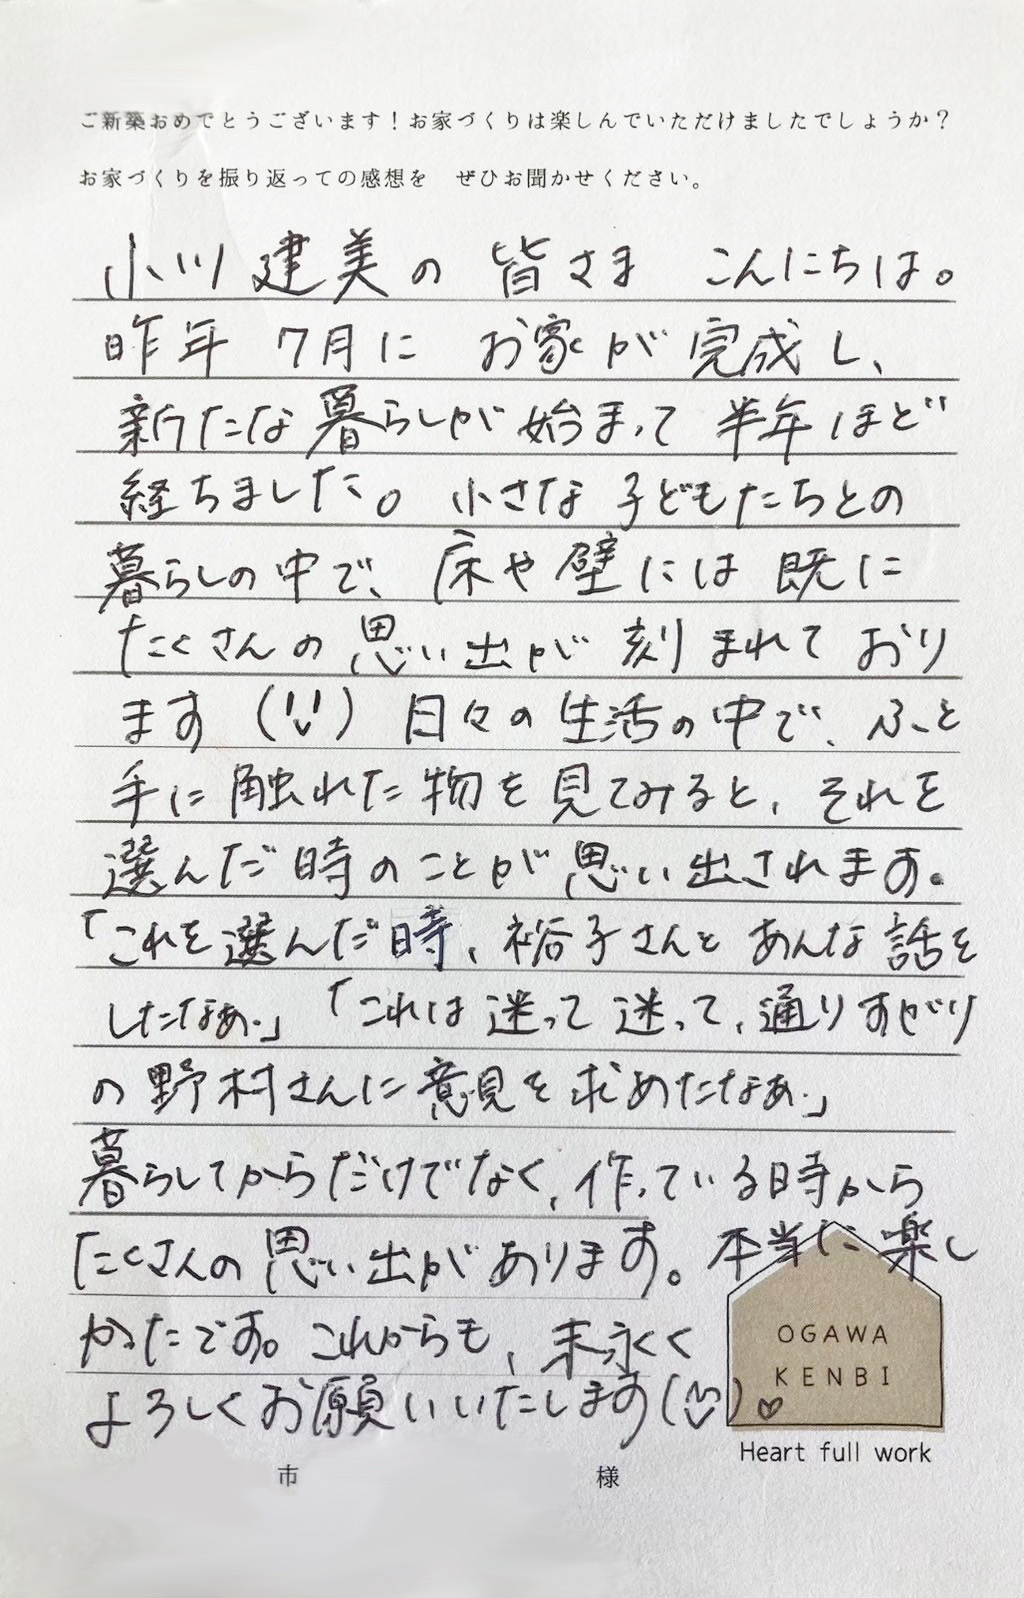 ご新築おめでとうございます！お家づくりは楽しんでいただけましたでしょうか？
お家づくりを振り返っての感想を　ぜひお聞かせください。
小川建美の 皆さま こんにちは。
昨年 7月に お家が完成し、
新たな暮らしが始まって 半年ほど
経ちました。小さな子どもたちとの
暮らしの中で、床や壁には既に
たくさんの思い出が刻まれており
ます 日々の生活の中で、ふと
手に触れた物を見てみると、それを
選んだ時のことが思い出されます。
「これを選んだ時、裕子さんとあんな話を
したなぁ。」「これは迷って迷って、通りすがり
の野村さんに意見を求めたなぁ。」
暮らしてからだけでなく、作っている時から
たくさんの思い出があります。本当に楽し
かったです。これからも、末永く
よろしくお願いいたします
OGAWA
KENBI
Heart full work
市　様